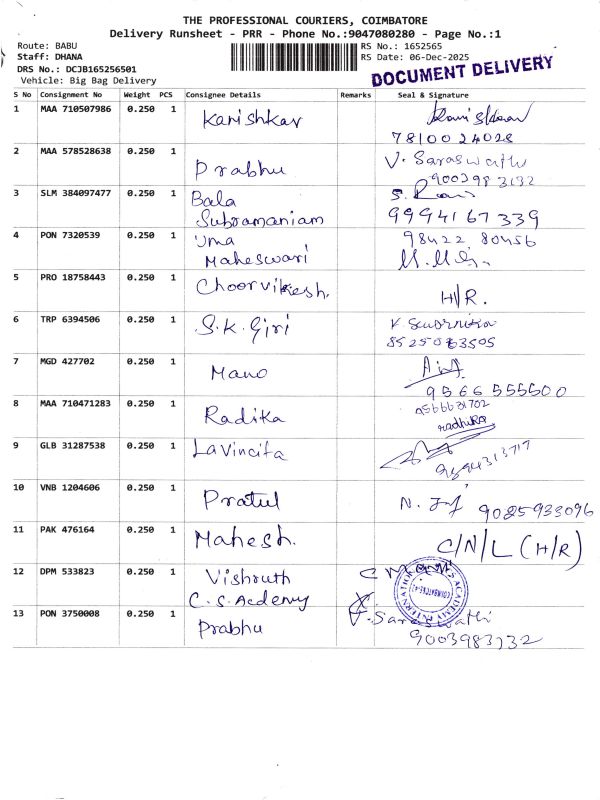 THE PROFESSIONAL COURIERS, COIMBATORE
Delivery Runsheet - PRR - Phone No.:9047080280 - Page No.:1
Route: BABU RS No.: 1652565
Staff: DHANA RS Date: 06-Dec-2025
DRS No.: DCJB165256501
Vehicle: Big Bag Delivery
DOCUMENT DELIVERY
S No Consignment No Weight PCS Consignee Details Remarks Seal & Signature
1 MAA 710507986 0.250 1 Karishkar
7810024028
2 MAA 578528638 0.250 1 Prabhu V. Saraswathi
9003983132
3 SLM 384097477 0.250 1 Bala S. Rani
Subramaniam 9994167339
4 PON 7320539 0.250 1 Uma 98422 80456
Maheswari
5 PRO 18758443 0.250 1 H/R.
6 TRP 6394506 0.250 1 S.K. Giri
7 MGD 427702 0.250 1 Mano
9566555500
8 MAA 710471283 0.250 1 Radika
radhika
9 GLB 31287538 0.250 1 Lavincita
10 VNB 1204606 0.250 1 Pratul 9025933096
11 PAK 476164 0.250 1 Mahesh. C/N/L (H/R)
12 DPM 533823 0.250 1 Vishruth
C.S. Acdemy
13 PON 3750008 0.250 1 Prabhu V. Saraswathi
9003983132